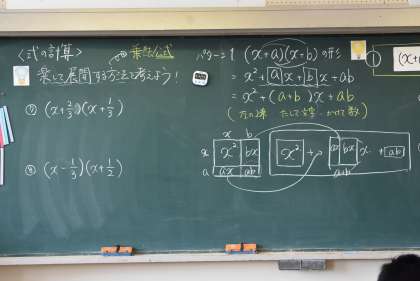 〈式の計算〉
乗法公式
楽して展開する方法を考えよう!
⑦ (x+2/3)(x+1/3)
⑧ (x-1/3)(x+1/2)
パターン1 (x+a)(x+b)の形
= x²+ax+bx+ab
= x²+(a+b)x+ab
x b
x x² bx
a ax ab
x² +
x
+ ab
a+b
①
(x+